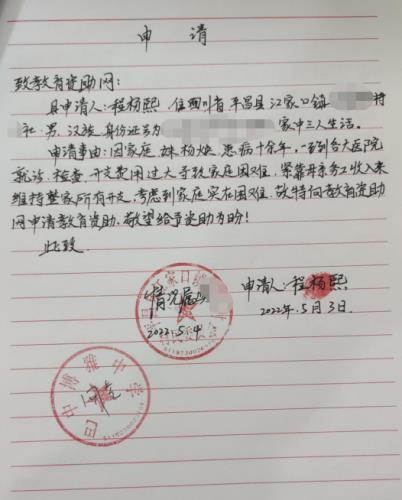 申请
致教育资助网：
具申请人：程杨熙，住四川省平昌县江家口镇 村
社，男，汉族，身份证号为 家中三人生活。
申请事由：因家庭 妹杨焕，患病十余年，一直到各大医院
就诊、检查，开支费用过大导致家庭困难，紧靠母亲务工收入来
维持整家所有开支，考虑到家庭实在困难，敬特向教育资助
网申请教育资助，敬望给予资助为盼！
此致
申请人：程杨熙
2022年.5月3日.
情况属实
2022.5.4
巴中博雅中学